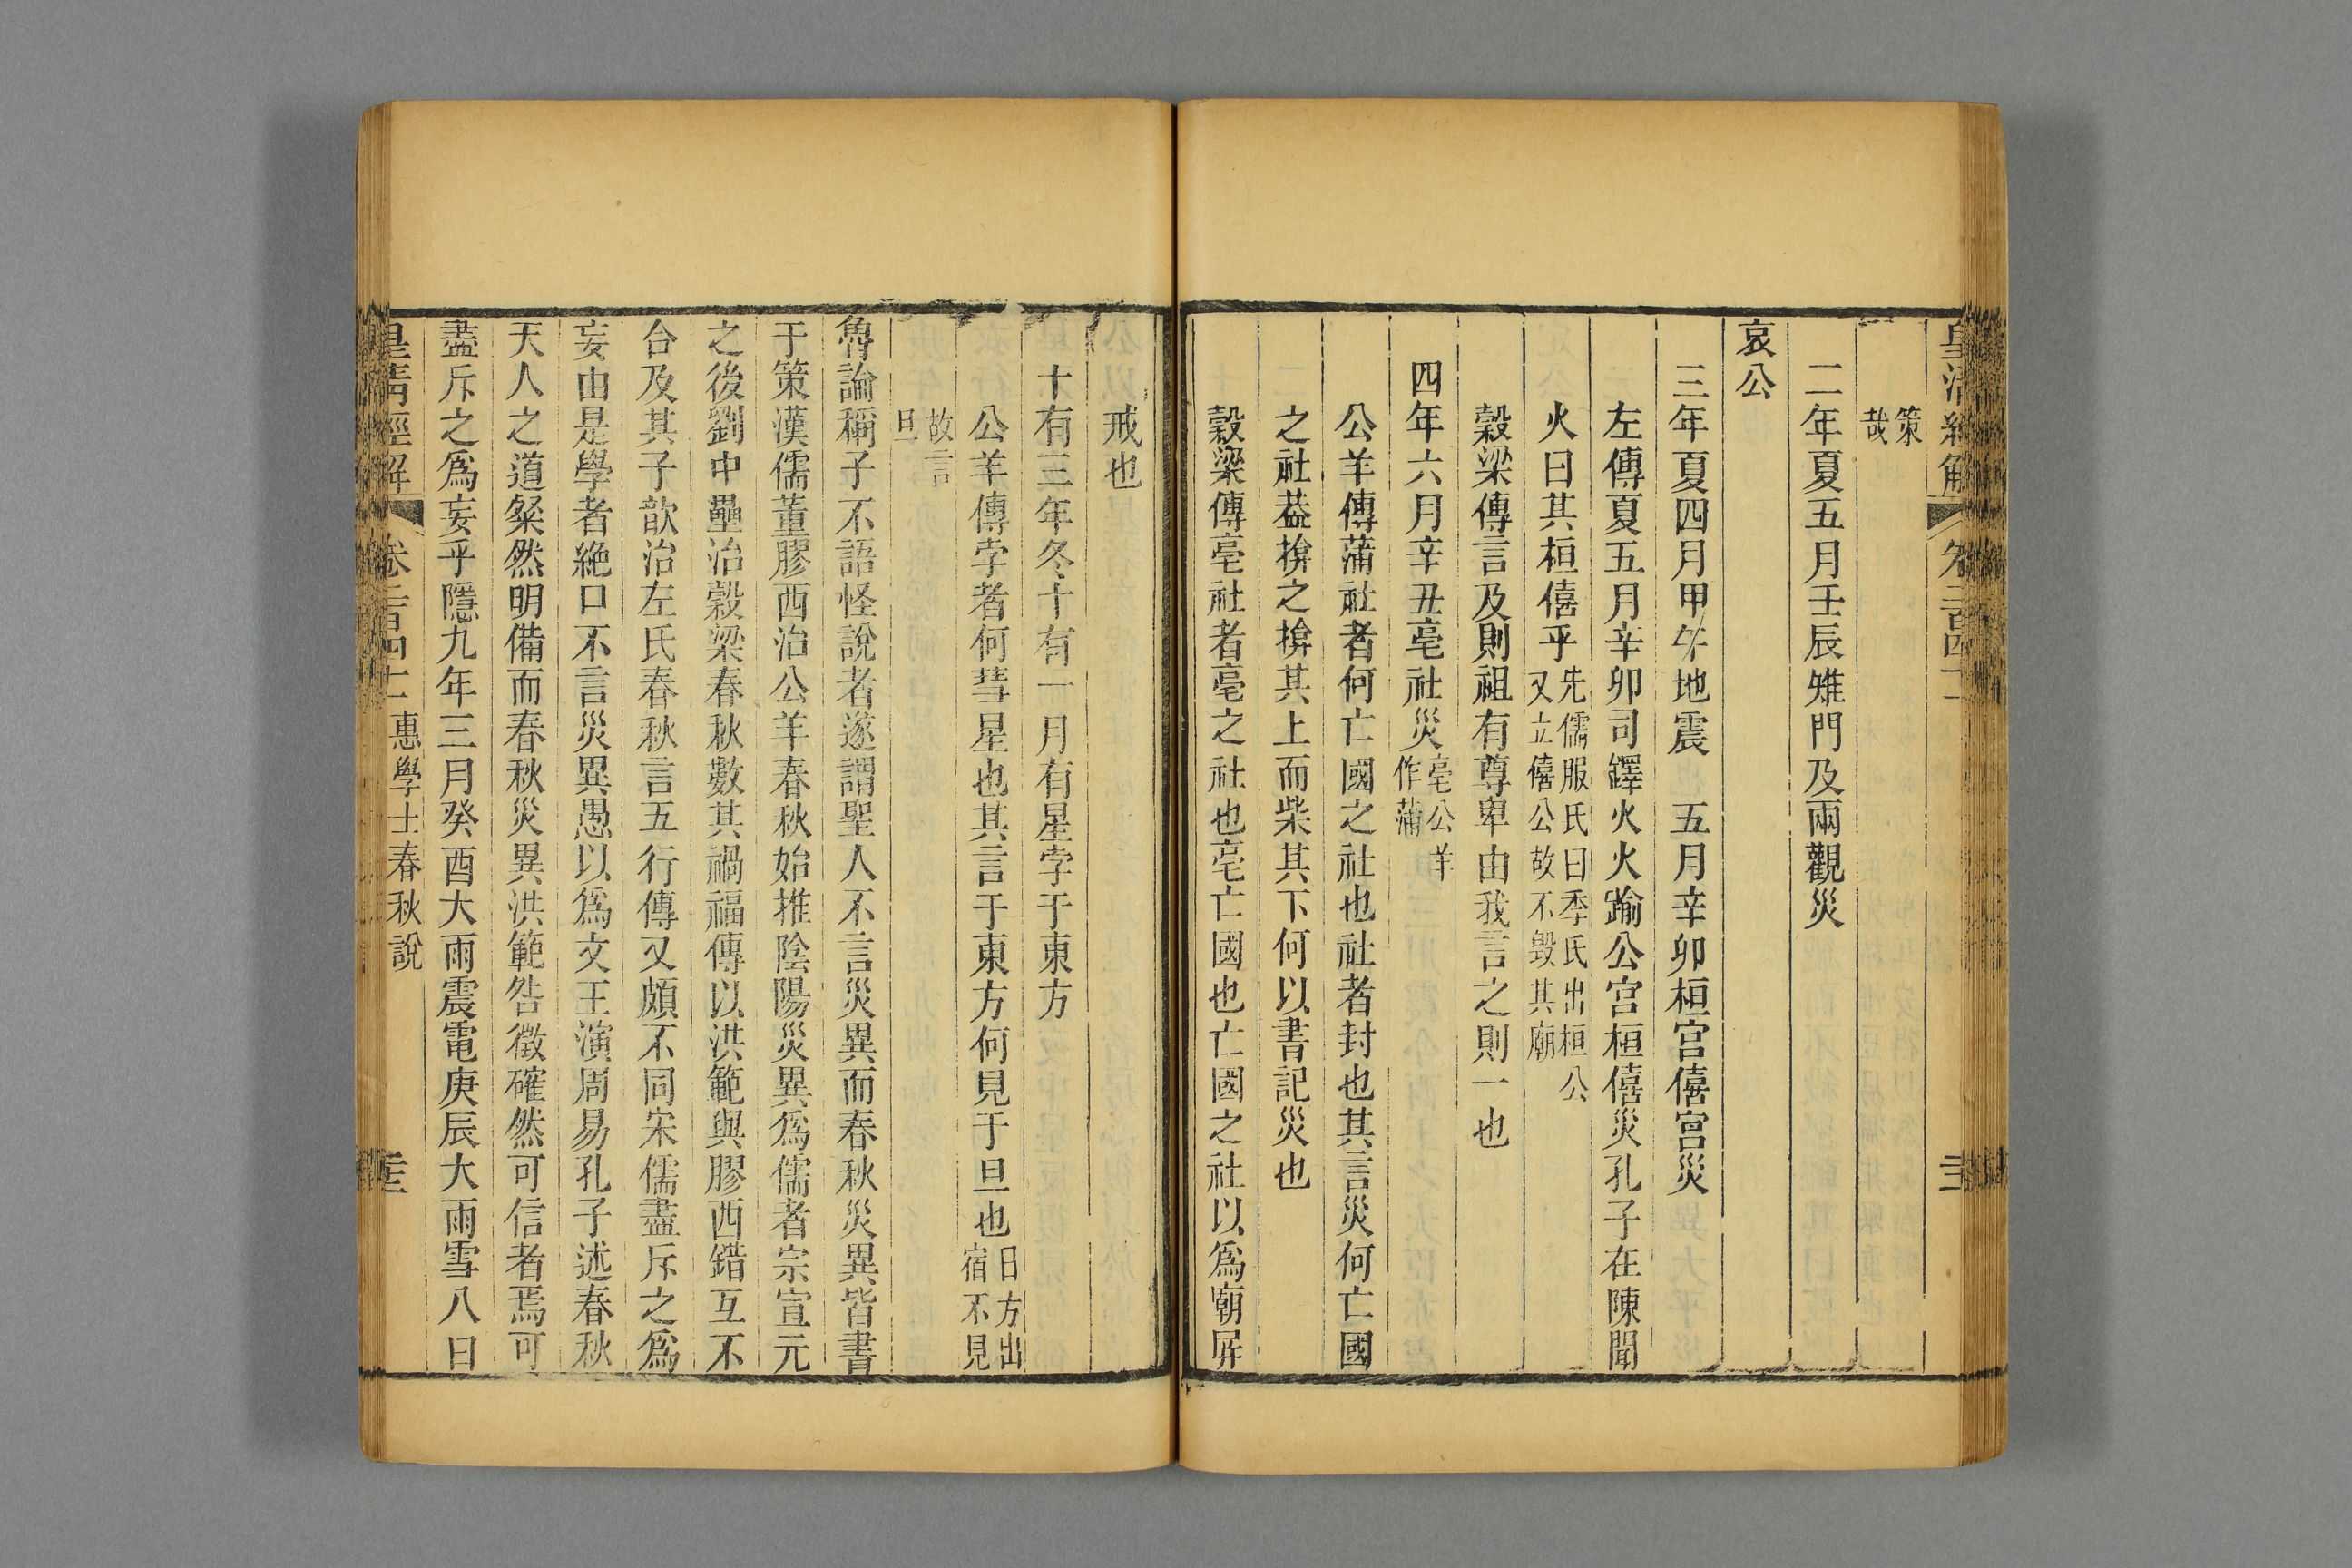 皇清經解 卷二百四十一
策哉
二年夏五月壬辰雉門及兩觀災
哀公
三年夏四月甲午地震　五月辛卯桓宮僖宮災
左傳夏五月辛卯司鐸火火踰公宮桓僖災孔子在陳聞
火曰其桓僖乎先儒服氏曰季氏出桓公又立僖公故不毀其廟
穀梁傳言及則祖有尊卑由我言之則一也
四年六月辛丑亳社災亳公羊作蒲
公羊傳蒲社者何亡國之社也社者封也其言災何亡國
之社葢揜之揜其上而柴其下何以書記災也
穀梁傳亳社者亳之社也亳亡國也亡國之社以爲廟屏
戒也
十有三年冬十有一月有星孛于東方
公羊傳孛者何彗星也其言于東方何見于旦也日方出宿不見
故言旦
魯論稱子不語怪說者遂謂聖人不言災異而春秋災異皆書
于策漢儒董膠西治公羊春秋始推陰陽災異爲儒者宗宣元
之後劉中壘治穀梁春秋數其禍福傳以洪範與膠西錯互不
合及其子歆治左氏春秋言五行傳又頗不同宋儒盡斥之爲
妄由是學者絶口不言災異愚以爲文王演周易孔子述春秋
天人之道粲然明備而春秋災異洪範咎徵確然可信者焉可
盡斥之爲妄乎隱九年三月癸酉大雨震電庚辰大雨雪八日
皇清經解 卷二百四十一 惠學士春秋說